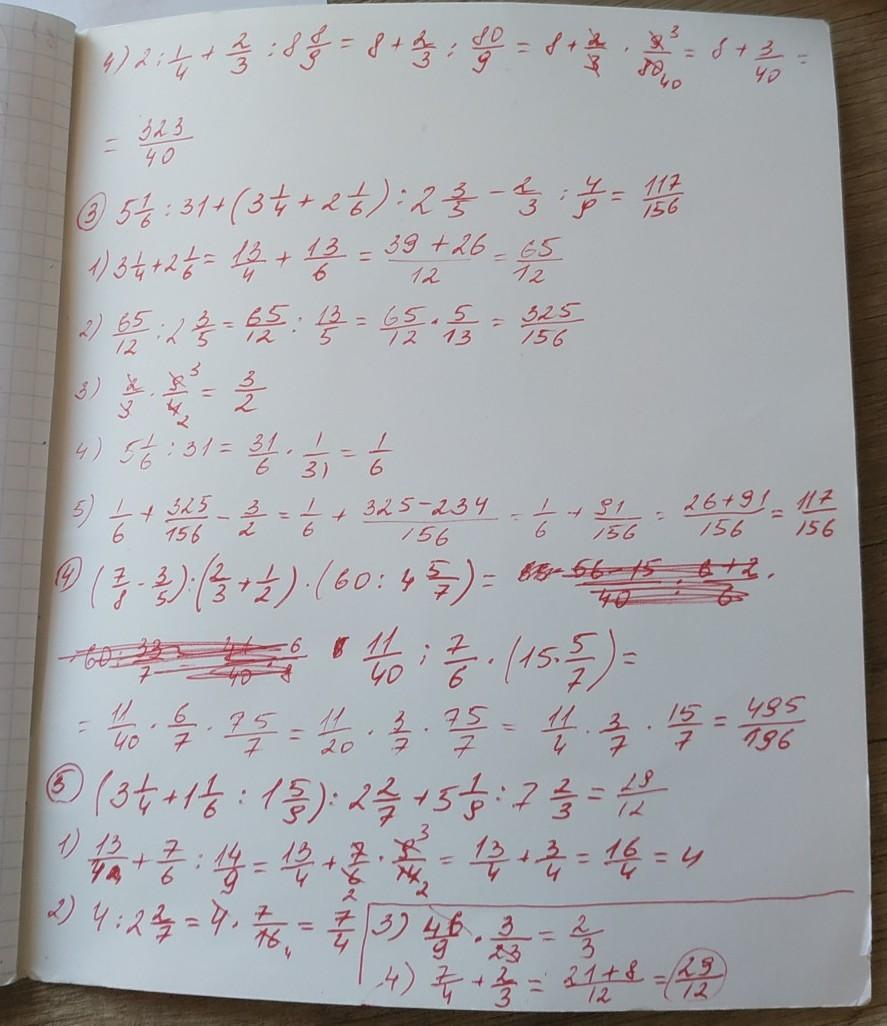 4) 2 : 1/4 + 2/3 : 8 8/9 = 8 + 2/3 : 80/9 = 8 + 2/3 · 9/80 3 40 = 8 + 3/40 =
= 323/40
③ 5 1/6 : 31 + (3 1/4 + 2 1/6) : 2 3/5 - 2/3 : 4/9 = 117/156
1) 3 1/4 + 2 1/6 = 13/4 + 13/6 = 39+26/12 = 65/12
2) 65/12 : 2 3/5 = 65/12 : 13/5 = 65/12 · 5/13 = 325/156
3) 2/3 · 9/4 3 2 = 3/2
4) 5 1/6 : 31 = 31/6 · 1/31 = 1/6
5) 1/6 + 325/156 - 3/2 = 1/6 + 325-234/156 = 1/6 + 91/156 = 26+91/156 = 117/156
④ (7/8 - 3/5) : (2/3 + 1/2) · (60 : 4 5/7) =
11/40 : 7/6 · (15 · 5/7) =
= 11/40 · 6/7 · 75/7 = 11/20 · 3/7 · 75/7 = 11/4 · 3/7 · 15/7 = 495/196
⑤ (3 1/4 + 1 1/6 : 1 5/9) : 2 2/7 + 5 1/9 : 7 2/3 = 29/12
1) 13/4 + 7/6 : 14/9 = 13/4 + 7/6 2 · 9/14 3 2 = 13/4 + 3/4 = 16/4 = 4
2) 4 : 2 2/7 = 4 · 7/16 4 = 7/4
3) 46/9 · 3/23 = 2/3
4) 7/4 + 2/3 = 21+8/12 = 29/12